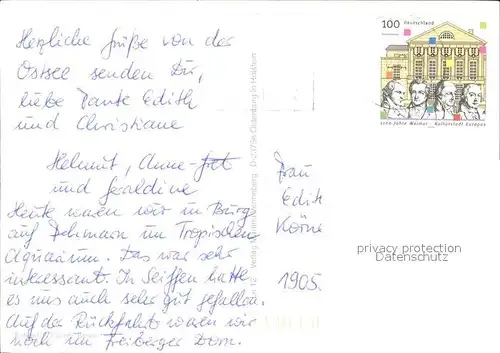 Herzliche Grüße von der
Ostsee senden Dir,
liebe Tante Edith
und Christiane
Helmut, Anne-
und Geraldine
Heute waren wir in Burg
auf Fehmarn im Tropischen
Aquarium. Das war sehr
interessant. In Seiffen hatte
es uns auch sehr gut gefallen.
Auf der Rückfahrt waren wir
noch im Freiberger Dom.
Frau
Edith
Körne
1905
100 Deutschland
1100 Jahre Weimar Kulturstadt Europas
privacy protection
Datenschutz
Verlag
D-23758 Oldenburg in Holstein